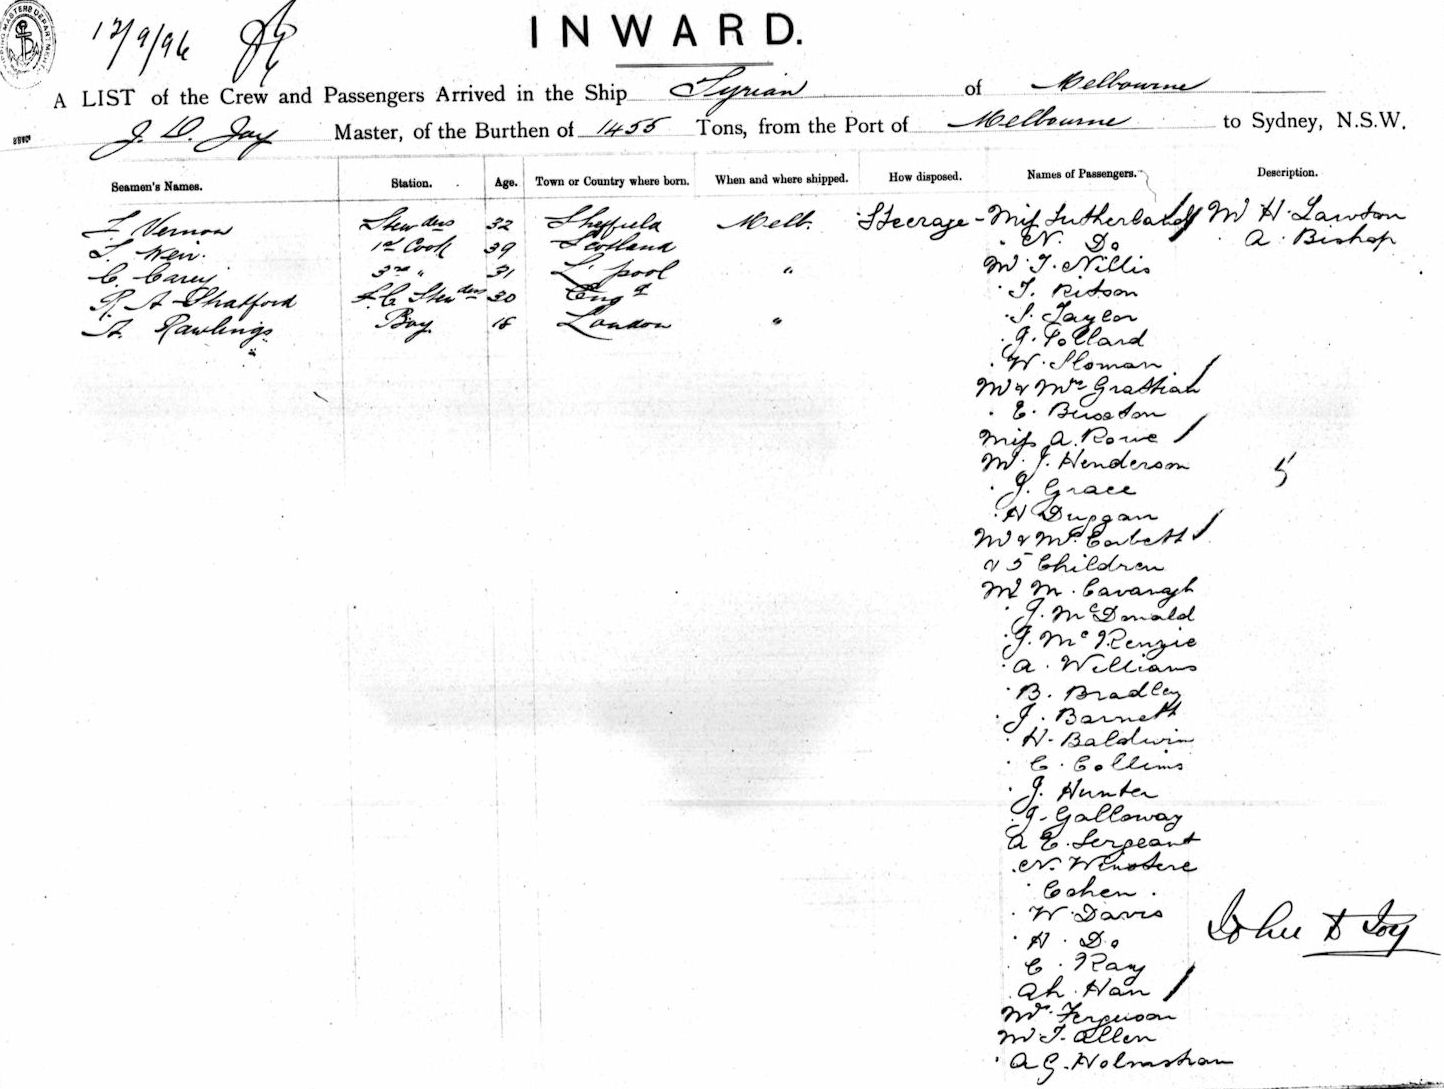 12/9/96
INWARD.
A LIST of the Crew and Passengers Arrived in the Ship Tyrian of Melbourne
J. D. Joy Master, of the Burthen of 1455 Tons, from the Port of Melbourne to Sydney, N.S.W.
Seamen's Names. Station. Age. Town or Country where born. When and where shipped. How disposed. Names of Passengers. Description.
F Vernon Stewdess 32 Sheffield Melb. Steerage - Miss Sutherland Mr H. Lawton
Weir. 1st Cook 39 Scotland N. Do A. Bishop
C. Carey 3rd " 31 L'pool " Mr T. Nillis
R A Shatford F.C. Stewdess 30 Engd T. Ritson
A. Rawlings Boy 18 London " S. Taylor
J. Pollard
W. Sloman
Mr & Mrs Grattian
E. Buxton
Miss A. Rowe
Mr J. Henderson 5
J. Grace
H Duggan
Mr & Mrs Corbett
& 5 Children
Mr M. Cavanagh
J. McDonald
J. McKenzie
A. Williams
B. Bradley
J. Barnett
H. Baldwin
C. Collins
J. Hunter
J. Galloway
A E. Sergeant
N.
Cohen.
W. Davis John D Joy
H. Do
C. Ray
Ah. Han
Mrs Ferguson
Mr T. Allen
A G.